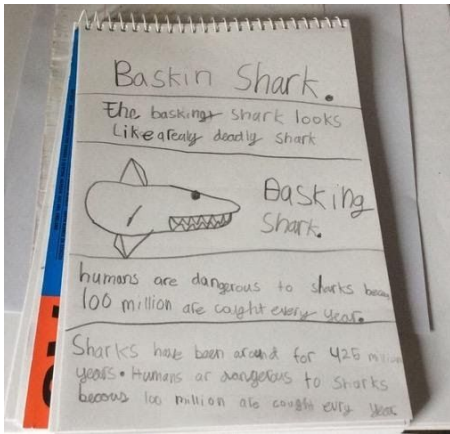 Baskin Shark.
The basking shark looks
Like a realy deadly shark
Basking
Shark.
humans are dangerous to sharks becau
100 million are caught every year.
Sharks have been around for 425 million
years. Humans ar dangerous to sharks
becous 100 million are caught evry year